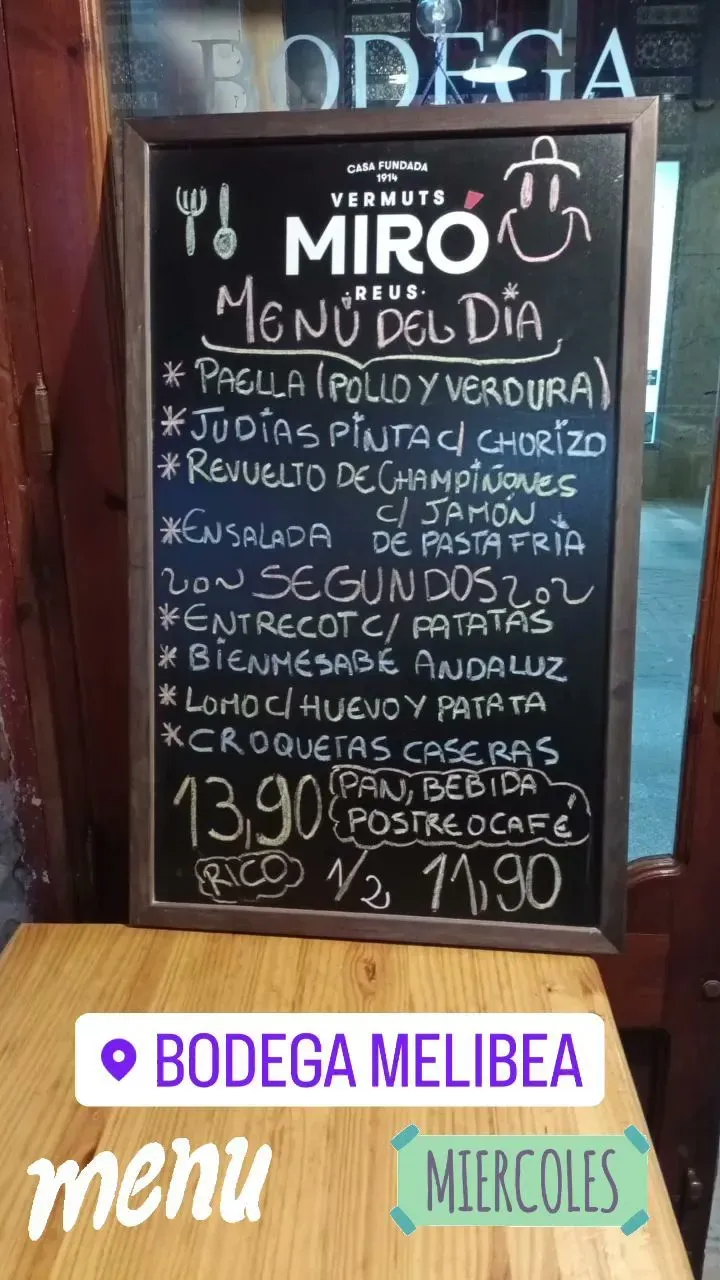 BODEGA
CASA FUNDADA
1914
VERMUTS
MIRÓ
·REUS·
MENÚ DEL DIA
* PAELLA (POLLO Y VERDURA)
* JUDIAS PINTA C/ CHORIZO
* REVUELTO DE CHAMPIÑONES
C/ JAMÓN
* ENSALADA DE PASTA FRIA
SEGUNDOS
* ENTRECOT C/ PATATAS
* BIENMESABE ANDALUZ
* LOMO C/ HUEVO Y PATATA
* CROQUETAS CASERAS
13,90 PAN, BEBIDA
POSTRE O CAFÉ
RICO 1/2 11,90
BODEGA MELIBEA
menu
MIERCOLES